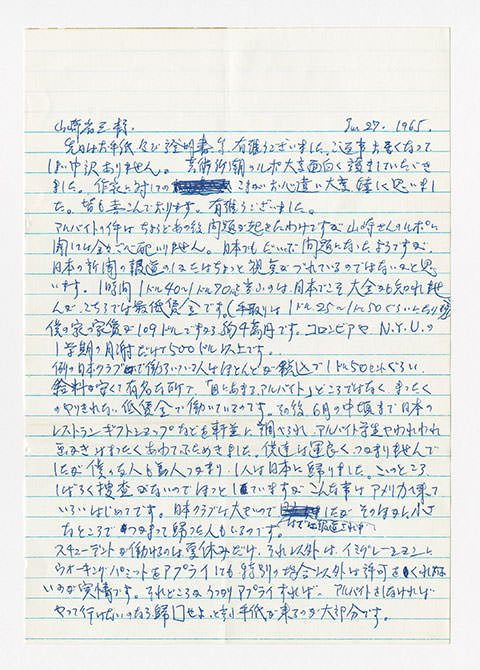 山崎省三様 Jun 27. 1965.
先日はお手紙並びに証明書等、有難うございました。ご返事が遅くなって
しまい申訳ありません。芸術新潮のルポ大変面白く読ませていただき
ました。作家に対しての こまかいお心遣い大変嬉しく思いまし
た。皆も喜こんでおります。有難うございました。
アルバイトの件はちょっとあの後問題が起きたわけですが山崎さんのルポに
関しては全くご心配いりません。日本でもだいぶ問題になったようですが、
日本の新聞の報道の仕方はちょっと視点がづれているのではないかと思
います。1時間1ドル40〜1ドル90と言うのは、日本でこそ大金かも知れませ
んが、こちらでは最低賃金です。(手取りは1ドル25〜1ドル50ぐらいになります)
僕の家の家賃が109ドルですから約4萬円です。コロンビアや N.Y.U.の
1学期の月謝だけで500ドル以上です。
例の日本クラブで働らいている人はほとんどが税込で1ドル50セントぐらい、
給料が安くて有名な所で、「目にあまるアルバイト」どころではなく、まったく
のやりきれない低賃金で働いているのです。その後6月の中頃まで日本の
レストラン、ギフトショップなどを軒並に調べられ、アルバイト学生やわれわれ
絵かきはまったくあわてふためきました。僕達は運良くつかまりませんで
したが僕の友人も数人つかまり、1人は日本に帰りました。このところ
しばらく捜査がないのでほっとしていますがこんな事はアメリカに来て
いらいはじめてです。日本クラブは大きいので でしたがそのほかに小
などでは報道され
なところでつかまって帰った人もいるのです。
スチューデントが働けるのは夏休みだけ、それ以外は、イミグレーションに
ウオーキングパミットをアプライしても特別の場合以外は許可をくれない
のが実情です。それどころかうっかりアプライすれば、アルバイトをしなければ
やって行けないのなら帰国せよ、と言う手紙が来るのが大部分です。